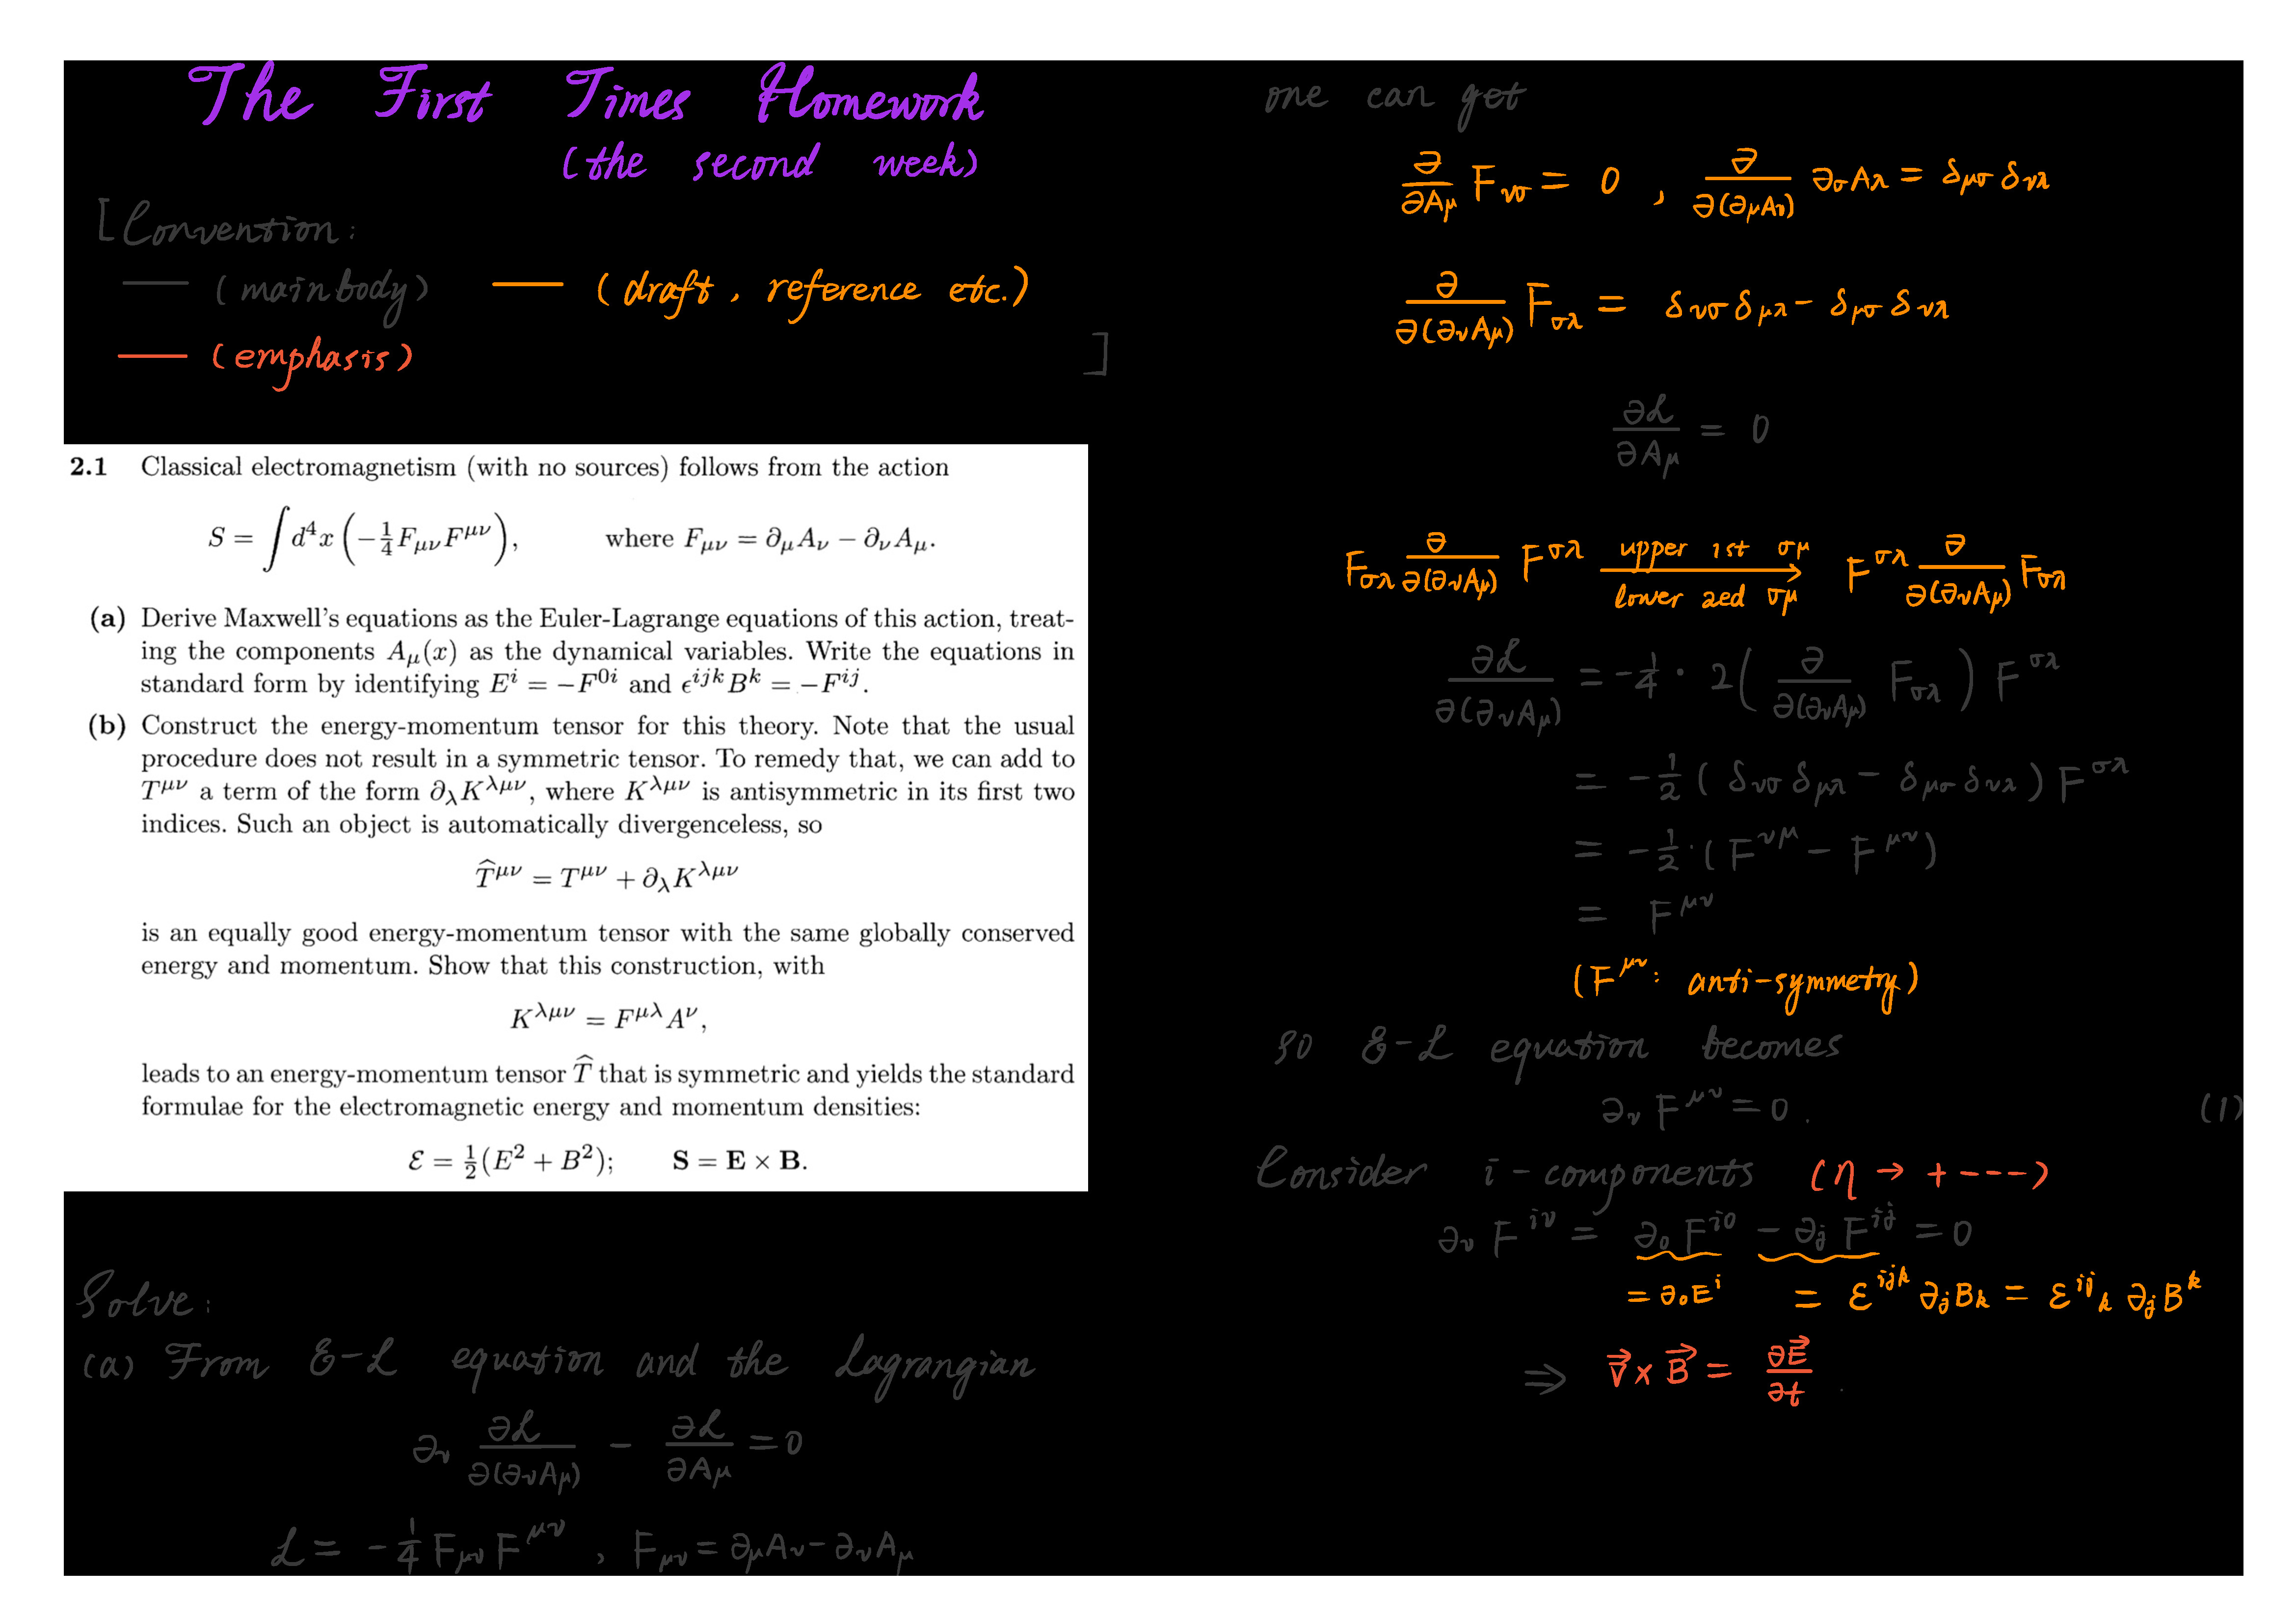 The First Times Homework
(the second week)
[Convention:
— (main body) — (draft, reference etc.)
— (emphasis) ]
2.1 Classical electromagnetism (with no sources) follows from the action
S = ∫ d⁴x (−¼ F_{μν} F^{μν}), where F_{μν} = ∂_μ A_ν − ∂_ν A_μ.
(a) Derive Maxwell's equations as the Euler-Lagrange equations of this action, treat-
ing the components A_μ(x) as the dynamical variables. Write the equations in
standard form by identifying E^i = −F^{0i} and ϵ^{ijk} B^k = −F^{ij}.
(b) Construct the energy-momentum tensor for this theory. Note that the usual
procedure does not result in a symmetric tensor. To remedy that, we can add to
T^{μν} a term of the form ∂_λ K^{λμν}, where K^{λμν} is antisymmetric in its first two
indices. Such an object is automatically divergenceless, so
T̂^{μν} = T^{μν} + ∂_λ K^{λμν}
is an equally good energy-momentum tensor with the same globally conserved
energy and momentum. Show that this construction, with
K^{λμν} = F^{μλ} A^ν,
leads to an energy-momentum tensor T̂ that is symmetric and yields the standard
formulae for the electromagnetic energy and momentum densities:
ℰ = ½(E² + B²); S = E × B.
Solve:
(a) From E-L equation and the Lagrangian
∂_ν ∂ℒ/∂(∂_ν A_μ) − ∂ℒ/∂A_μ = 0
ℒ = −¼ F_{μν} F^{μν}, F_{μν} = ∂_μ A_ν − ∂_ν A_μ
one can get
∂/∂A_μ F_{νσ} = 0, ∂/∂(∂_μ A_ν) ∂_σ A_λ = δ_{μσ} δ_{νλ}
∂/∂(∂_ν A_μ) F_{σλ} = δ_{νσ} δ_{μλ} − δ_{μσ} δ_{νλ}
∂ℒ/∂A_μ = 0
F_{σλ} ∂/∂(∂_ν A_μ) F^{σλ} → (upper 1st σμ / lower 2ed σμ) F^{σλ} ∂/∂(∂_ν A_μ) F_{σλ}
∂ℒ/∂(∂_ν A_μ) = −¼ · 2 (∂/∂(∂_ν A_μ) F_{σλ}) F^{σλ}
= −½ (δ_{νσ} δ_{μλ} − δ_{μσ} δ_{νλ}) F^{σλ}
= −½ · (F^{νμ} − F^{μν})
= F^{μν}
(F^{μν}: anti-symmetry)
so E-L equation becomes
∂_ν F^{μν} = 0. (1)
Consider i-components (η → + - - -)
∂_ν F^{iν} = ∂_0 F^{i0} − ∂_j F^{ij} = 0
= ∂_0 E^i = ε^{ijk} ∂_j B_k = ε^{ij}_k ∂_j B^k
⇒ ∇⃗ × B⃗ = ∂E⃗/∂t.